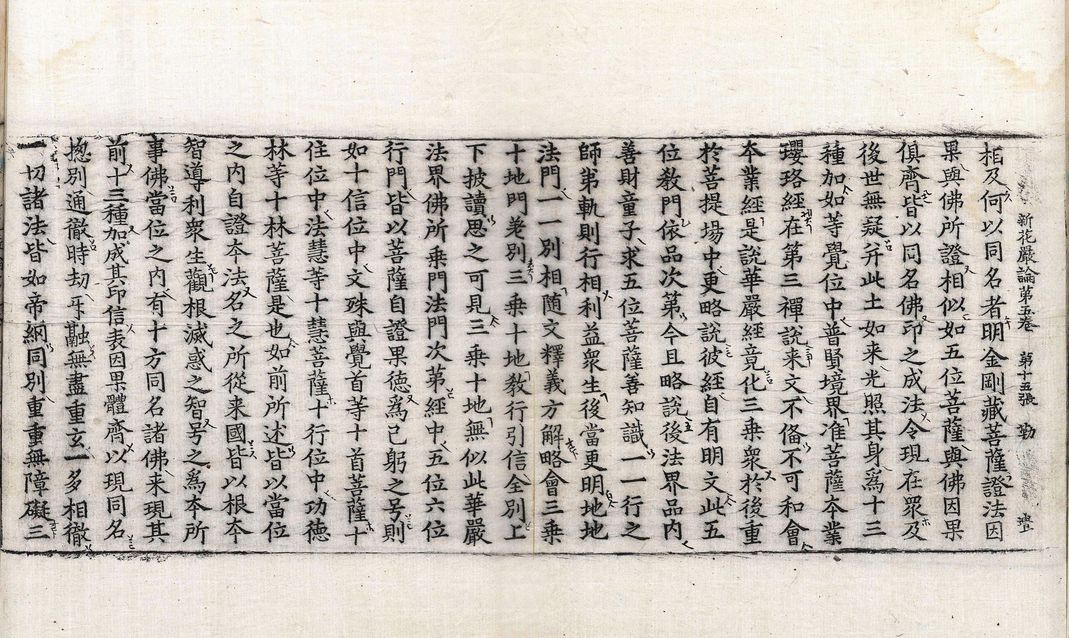 相及何以同名者明金剛藏菩薩證法因
新花嚴論第五卷　第十五張　勒
果與佛所證相似如五位菩薩與佛因果
俱齊皆以同名佛印之成法令現在衆及
後世無疑幷此土如来光照其身爲十三
種加如等覺位中普賢境界准菩薩夲業
瓔珞經在第三禪說来文不俻不可和會
夲業經是說華嚴經竟化三乗衆於後重
於菩提場中更略說彼經自有明文此五
位教門依品次第今且略說後法界品内
善財童子求五位菩薩善知識一一行之
師弟軌則行相利益衆生後當更明地地
法門一一別相随文釋義方解略會三乗
十地門卷別三乗十地教行引信全別上
下披讀思之可見三乗十地無似此華嚴
法界佛所乗門法門次第經中五位六位
行門皆以菩薩自證果徳爲己躬之号則
如十信位中文殊與覺首等十首菩薩十
住位中法慧等十慧菩薩十行位中功徳
林等十林菩薩是也如前所述皆以當位
之内自證夲法名之所從来國皆以根夲
智導利衆生觀根滅惑之智号之爲本所
事佛當位之内有十方同名諸佛来現其
前十三種加成其印信表因果體齊以現同名
揔別通徹時劫㸦融無盡重玄一多相徹
一切諸法皆如帝網同別重重無障礙三